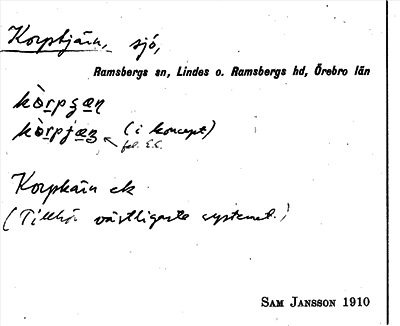 Korptjärn, sjö,
Ramsbergs sn, Lindes o. Ramsbergs hd, Örebro län
kòrpʒæn
kòrpjæn (i koncept)
fel. E.E.
Korpkärn ek
(Tillhör västligaste systemet.)
SAM JANSSON 1910